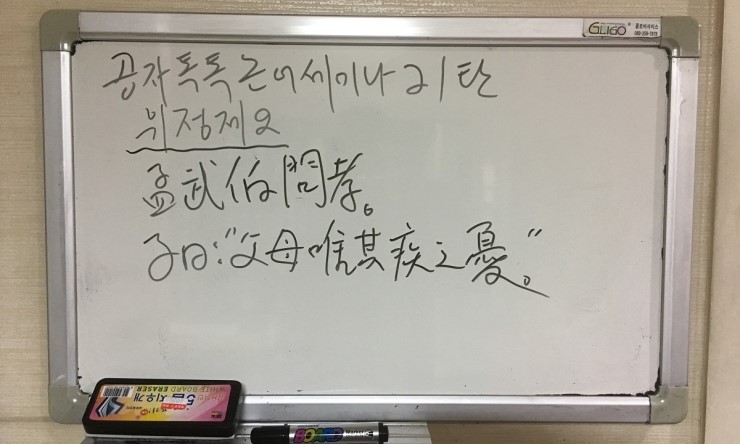 GLIGO
공자 톡톡 논어세미나 21탄
위정제2
孟武伯問孝。
子曰:“父母唯其疾之憂。”
WHITE BOARD ERASER
지우개
BOARD